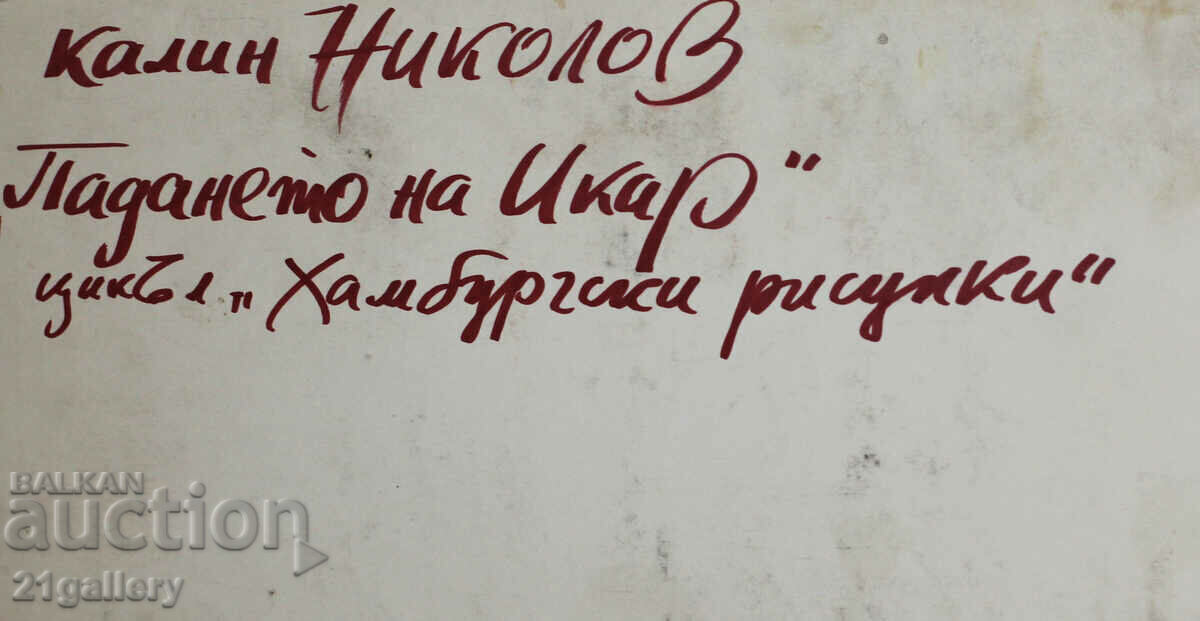 Калин Николов
Падането на Икар"
цикъл „Хамбургски рисунки"
BALKAN
auction
21gallery